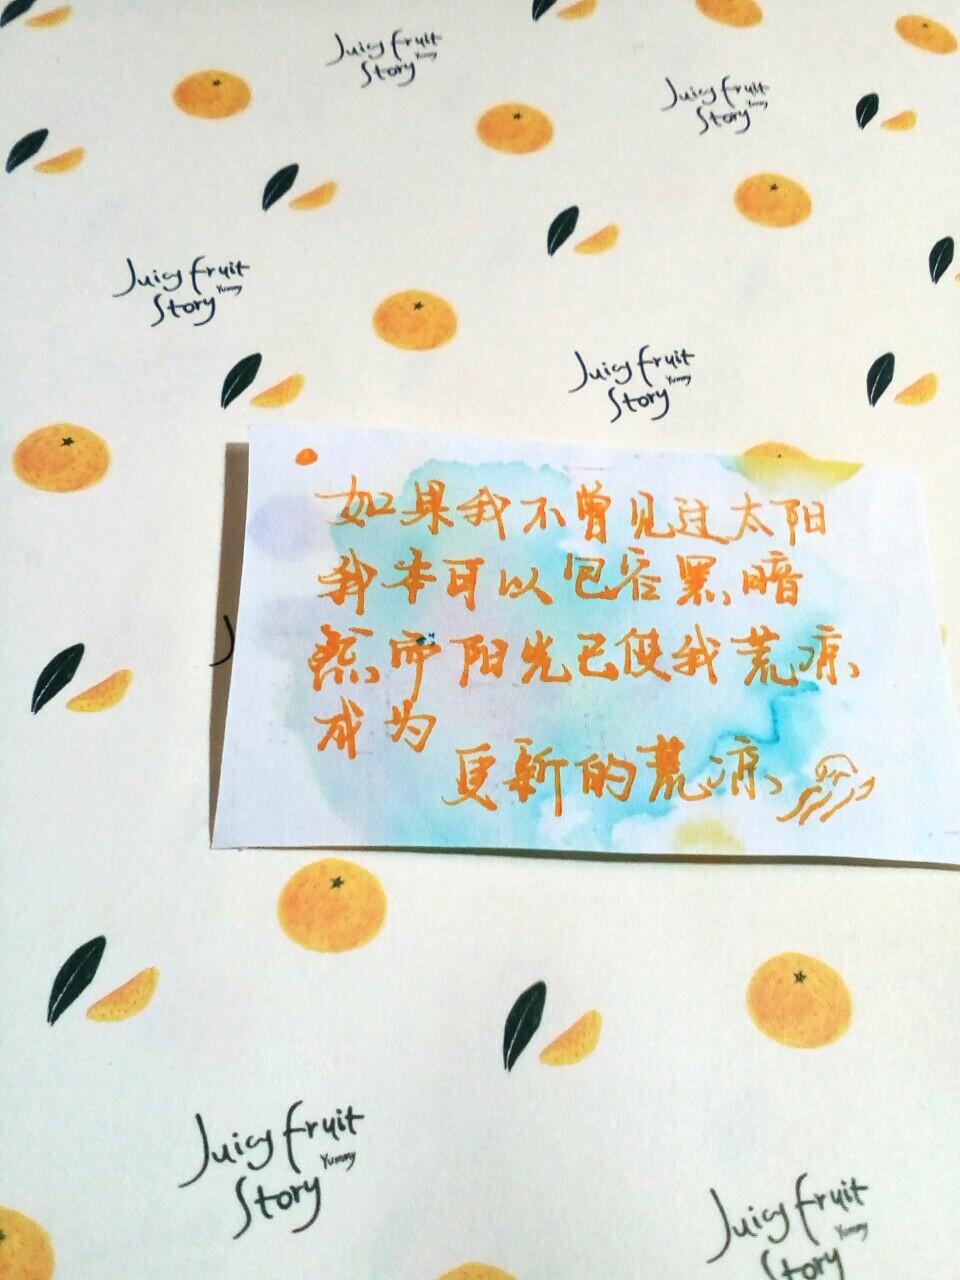 Juicy fruit
Yummy
Story
Juicy fruit
Yummy
Story
Juicy fruit
Yummy
Story
Juicy fruit
Yummy
Story
如果我不曾见过太阳
我本可以包容黑暗
然而阳光已使我荒凉
成为
更新的荒凉
Juicy fruit
Yummy
Story
Juicy fruit
Yummy
Story